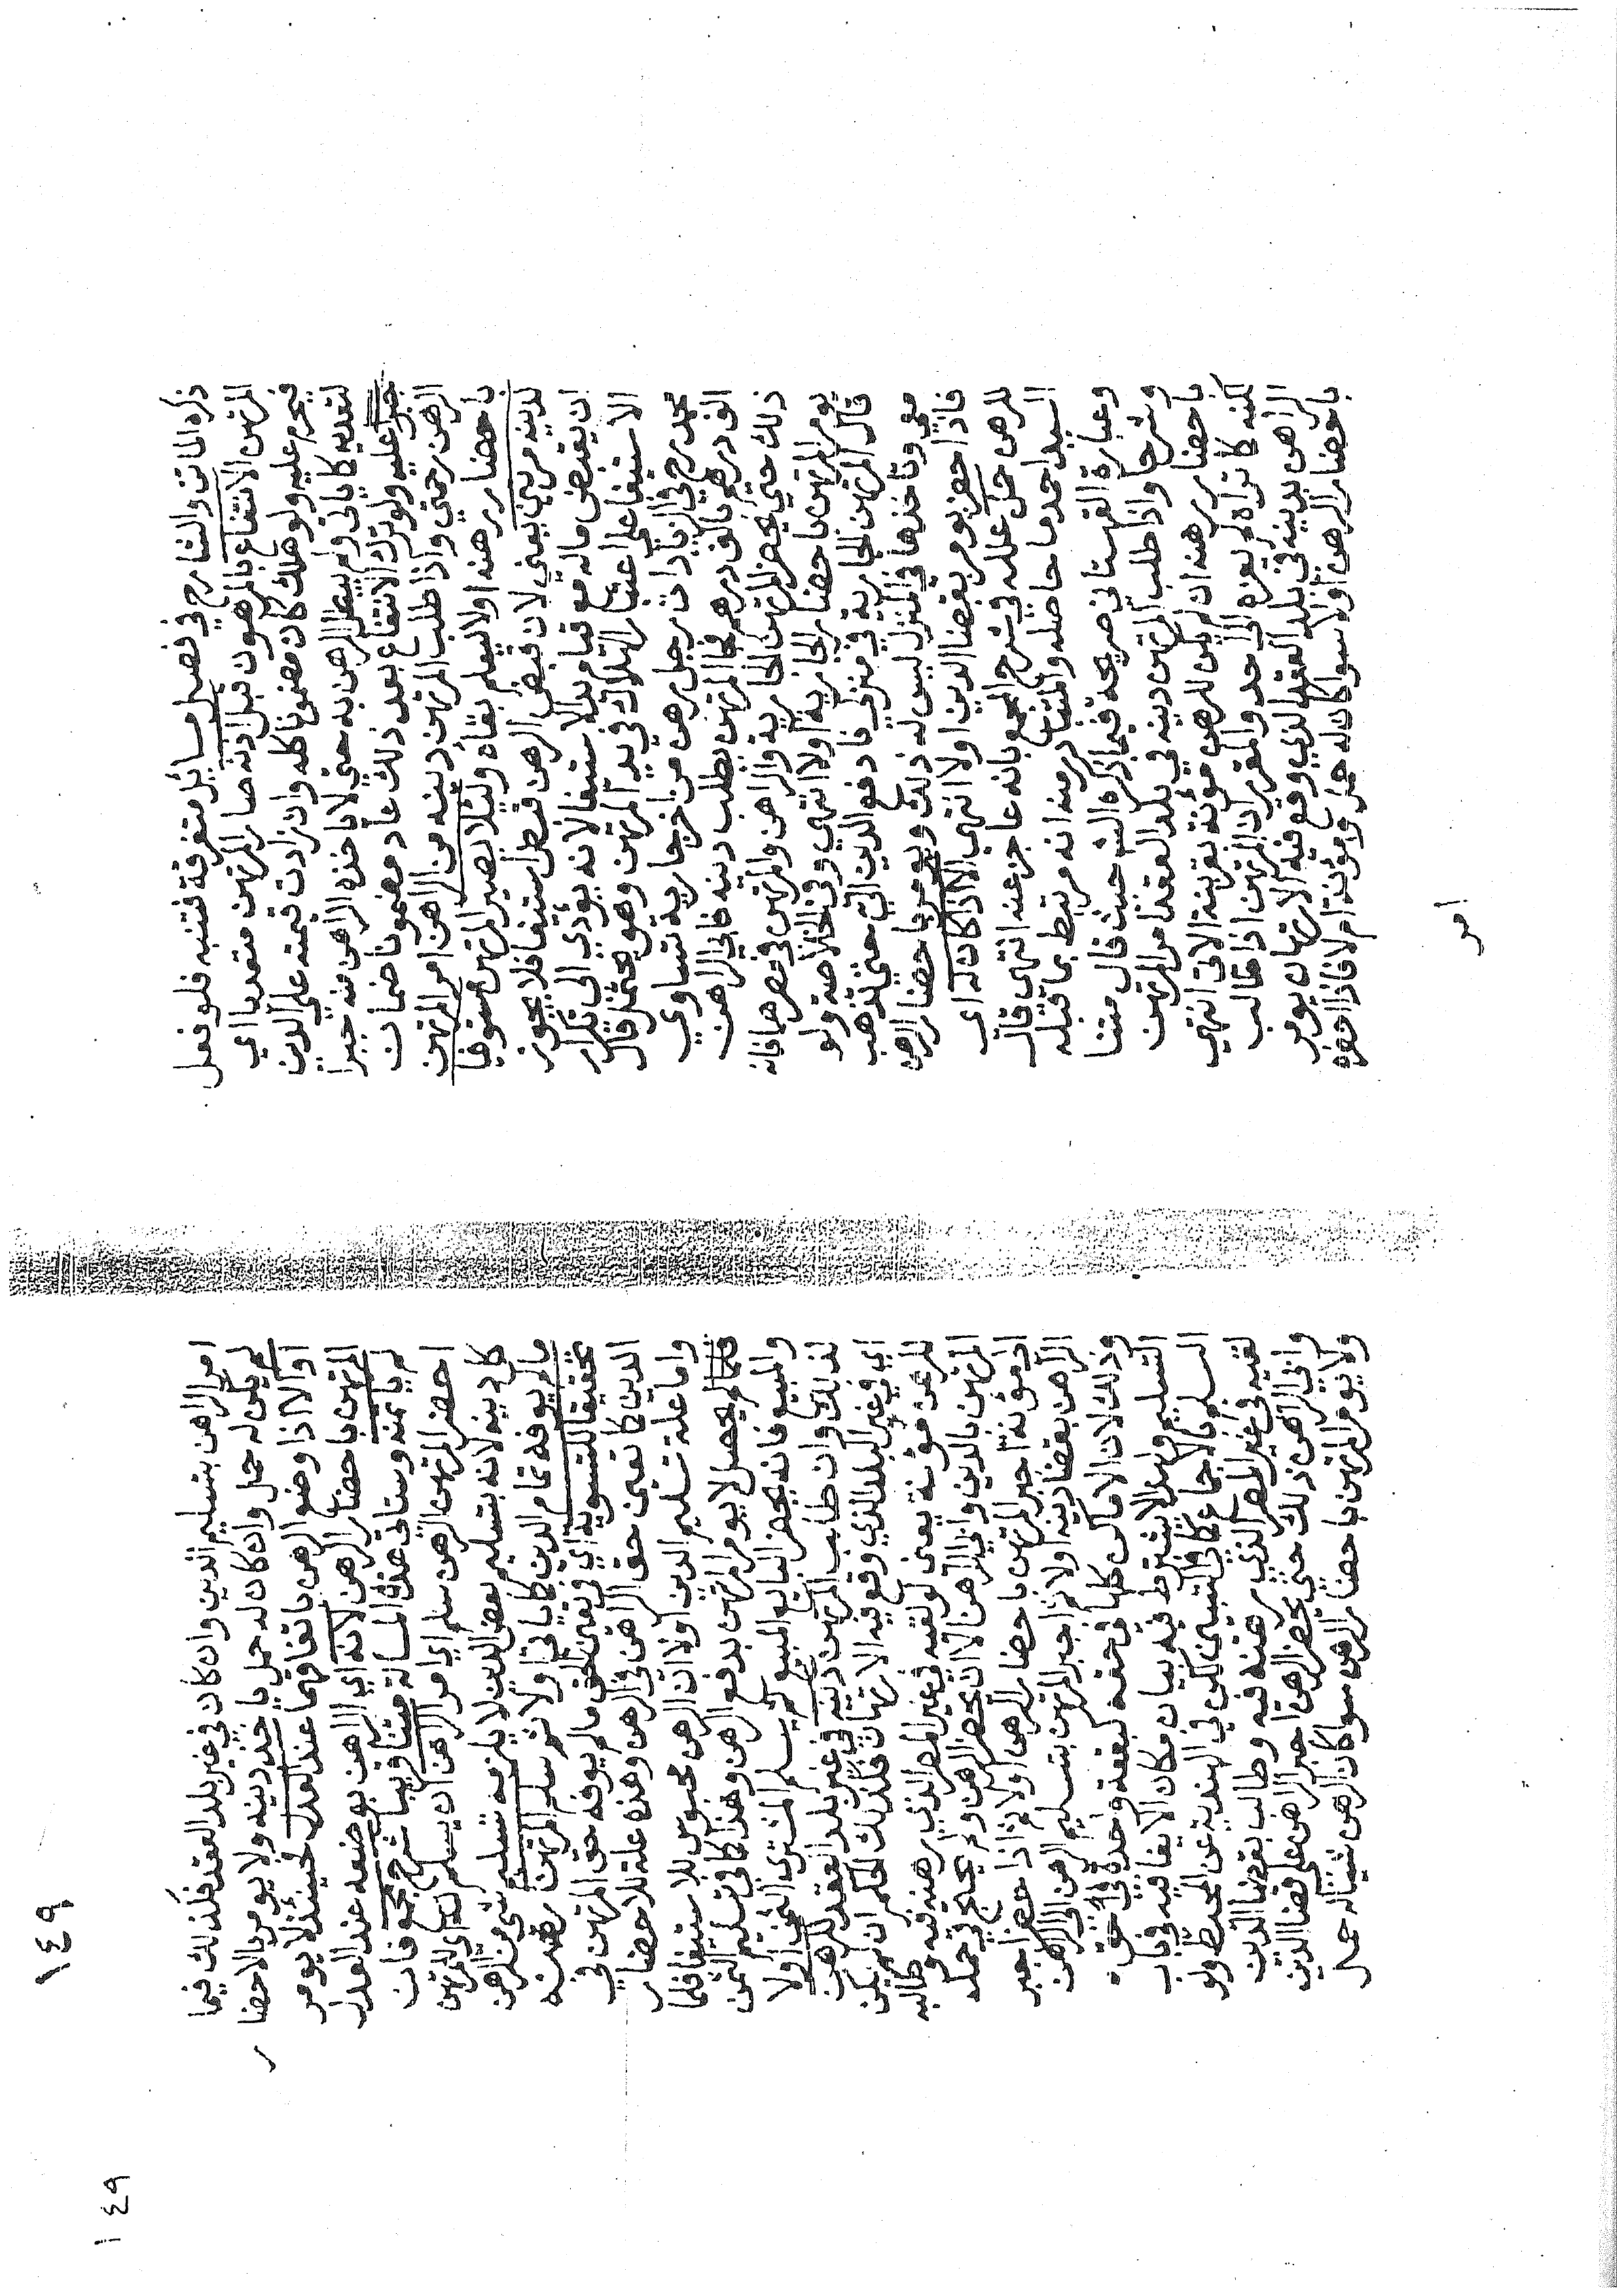 ذكره الماتن والشارح في فصل مسائل متفرقة فتنبه فلو فعل
المرتهن الانتفاع بالمرهون قبل اذنه صار المرتهن متعديا اي
فيحرم عليه ولو هلك كان مضمونا كله وان زادت قيمته علي الدين
لتعديه كما ياتي ولم يبطل الرهن به حتي لا ياخذه الراهن منه جبرا
جبرا عليه ولو ترك الانتفاع بعد ذلك عاد مضمونا ضمان
الرهن رحمتي واذا طلب المرتهن دينه من الراهن امر المرتهن
باحضار رهنه اولا ليعلم بقاؤه وليلا يصير المرتهن مستوفيا
لدينه مرتين يعني لان قبض الرهن قبض استيفا فلا يجوز
ان يقبض ماله مع قيام يد الاستيفا لانه يؤدي الى تكرار
الاستيفا علي اعتبار الهلاك في يد المرتهن وهو محتمل قال
محمد رح في الزيادات رجل رهن من اخر جارية تساوي
الف درهم بالف درهم فجا المرتهن يطلب دينه فابي الراهن
ذلك حتي يحضر المرتهن الجارية والراهن والمرتهن في مصرهما فانه
يومر المرتهن باحضار الجارية اولا انتهي وفي الخلاصة ولو
قال المرتهن الجارية في منزلي فادفع الدين الي حتي تذهب
معي وتأخذها في المنزل ليس له ذلك ويومر باحضار الرهن
فاذا احضر يومر بقضا الدين اولا انتهي الا اذا كان له اي
للرهن حمل علله في شرح المجمع بانه عاجز عنه انتهى قال
السيد احمد ما حاصله والمتبادر منه انه مرتبط بما قبله
وعبارة القهستاني صريحة فيما ذكره الش حيث قال متنا
وشرحا واذا طلب المرتهن دينه في بلد العقد امر المرتهن
باحضار رهنه ان لم يكن للرهن مؤنة بقرينة الاتي انتهي
لكنه كما تراه لم يعزه الى احد والمقرر ان المرتهن اذا طالب
الراهن بدينه في بلد العقد الذي وقع فيه الارتهان يومر
باحضار الرهن اولا سوا كان له حمل ومؤنة ام لا فاذا احضره
امر
١٤٩
١٤٩
امر الراهن بتسليم الدين وان كان في غير بلد العقد فكذلك فيما
لم يكن له حمل وان كان له حمل ياخذ دينه ولا يومر بالاحضار
او الا اذا وضع الرهن باتفاقهما عند العدل فحينئذ لا يومر
المرتهن باحضار الرهن لانه اي الراهن بوضعه عند العدل
لم يأتمنه وستاتي هذه المسالة متنا قريبا شرح مجمع فان
احضر المرتهن الرهن سلم اي امر الراهن ان يسلم له اي المرتهن
كل دينه لانه بتسليم بعض الدين لا يلزمه تسليم شي من الرهن
مالم يوفه تمام الدين كما ياتي اولا ثم سلم المرتهن رهنه
تحقيقا للتسوية اي في تعيين الحق مالم يوفه حق المرتهن في
الدين كما تعين حق الراهن في الرهن وهذه علة للاحضار
واما علة تسليم الدين اولا ان الرهن محبوس للاستيفا فلما
فلما لم يحصل لا يومر المرتهن بدفع الرهن وهذا كما في تسليم الثمن
والمبيع فانه يحضر البايع المبيع ثم يسلم المشتري الثمن اولا
لذلك وان طالب المرتهن دينه في غير بلد العقد للرهن
اي في غير البلد الذي وقع فيه الارتهان فكذلك الحكم ان لم يكن
للرهن مؤنة يعني لو لقيه في غير المصر الذي رهنه فيه وطالبه
المرتهن بالدين وابي الراهن الا ان يحضر الرهن ولم يحتج في حمله
الى مؤنة اجبر المرتهن باحضار الرهن اولا ثم اذا حضر اجبر
الراهن بقضا دينه اولا ثم اجبر المرتهن بتسليم الرهن الى الراهن
وذلك لان الاماكن كلها في حقه كبقعة واحدة في حق
التسليم ولهذا لا يشترط فيه بيان مكان الايفا فيه في باب
السلم بالاجماع كما في التبيين لكن في الهندية عن المحيط ولو
لقيه في غير المصر الذي رهنه فيه وطالب بقضا الدين
وابي الراهن ذلك حتي يحضر الرهن اجبر الراهن علي قضا الدين
ولا يومر المرتهن باحضار الرهن سوا كان الرهن شيئا له حمل